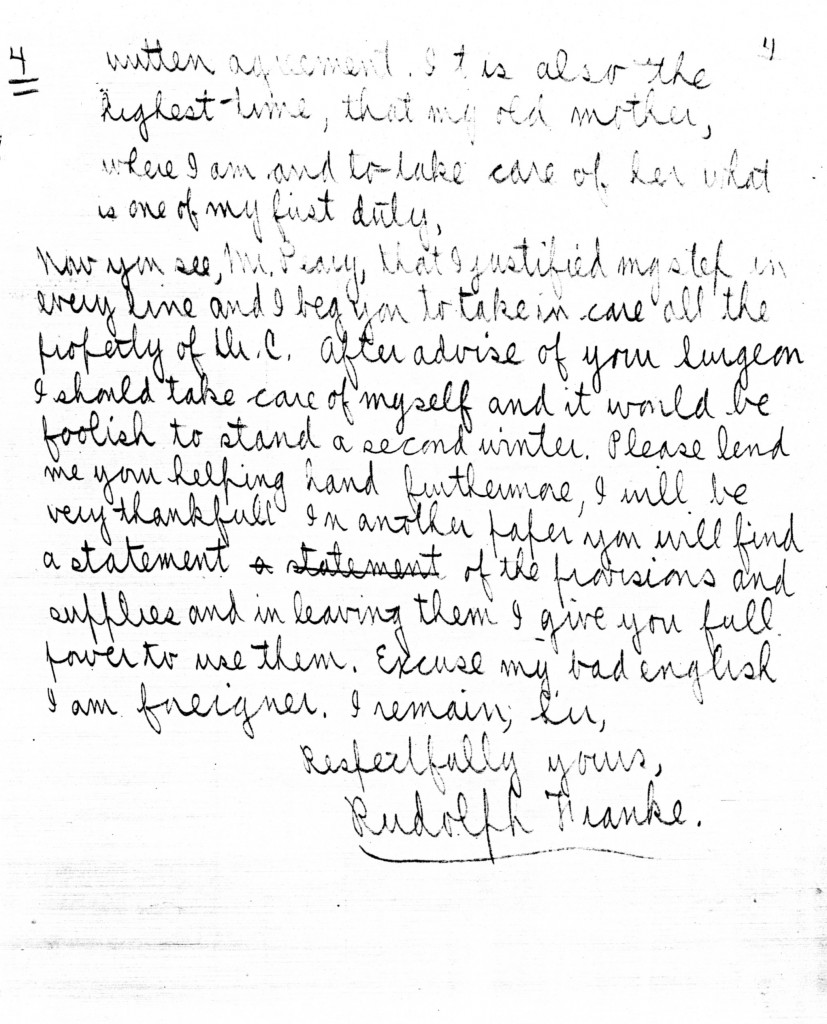 4 4
written agreement. It is also the
highest-time, that my old mother,
where I am and to take care of her what
is one of my first duty,
Now you see, Mr. Peary, that I justified my step in
every line and I beg you to take in care all the
property of Dr. C. After advise of your Surgeon
I should take care of myself and it would be
foolish to stand a second winter. Please lend
me your helping hand furthermore, I will be
very thankfull In another paper you will find
a statement a statement of the provisions and
supplies and in leaving them I give you full
power to use them. Excuse my bad english
I am foreigner. I remain, Sir,
Respectfully yours,
Rudolph Franke.